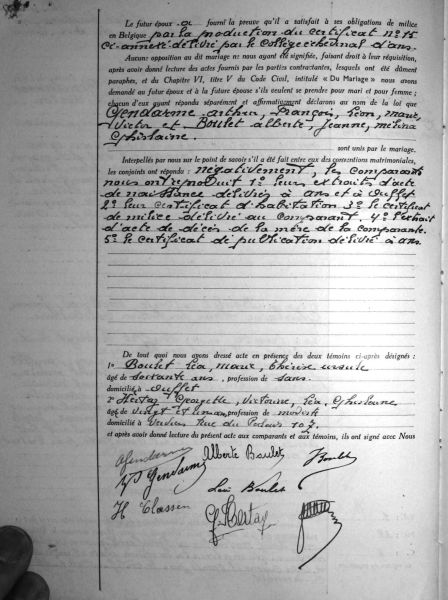 Le futur époux a fourni la preuve qu'il a satisfait à ses obligations de milice
en Belgique par la production du certificat n° 15
ci-annexé délivré par le Collège échevinal d'ans.
Aucune opposition au dit mariage ne nous ayant été signifiée, faisant droit à leur réquisition,
après avoir donné lecture des actes fournis par les parties contractantes, lesquels ont été dûment
paraphés, et du Chapitre VI, titre V du Code Civil, intitulé « Du Mariage » nous avons
demandé au futur époux et à la future épouse s'ils veulent se prendre pour mari et pour femme ;
chacun d'eux ayant répondu séparément et affirmativement déclarons au nom de la loi que
Gendarme Arthur, François, Léon, Marie,
Victor et Boulet Alberte, Jeanne, Mélina
Ghislaine.
sont unis par le mariage.
Interpellés par nous sur le point de savoir s'il a été fait entre eux des conventions matrimoniales,
les conjoints ont répondu : négativement, les comparants
nous ont produit 1° leurs extraits d'acte
de naissance délivrés à ans et à
2° leur certificat d'habitation 3° le certificat
de milice délivré au comparant. 4° l'extrait
d'acte de décès de la mère de la comparante.
5° le certificat de publication délivré à ans.
De tout quoi nous avons dressé acte en présence des deux témoins ci-après désignés :
1° Boulet Léa, Marie, Thérèse Ursule
âgé de soixante ans, profession de sans
domicilié à
2° Georgette, Victorine, Léa, Ghislaine
âgé de vingt et un ans, profession de modiste
domicilié à Verviers Rue du Palais 107
et après avoir donné lecture du présent acte aux comparants et aux témoins, ils ont signé avec Nous
AGendarme Alberte Boulet Boulet
Gendarme Léa Boulet
H Classen